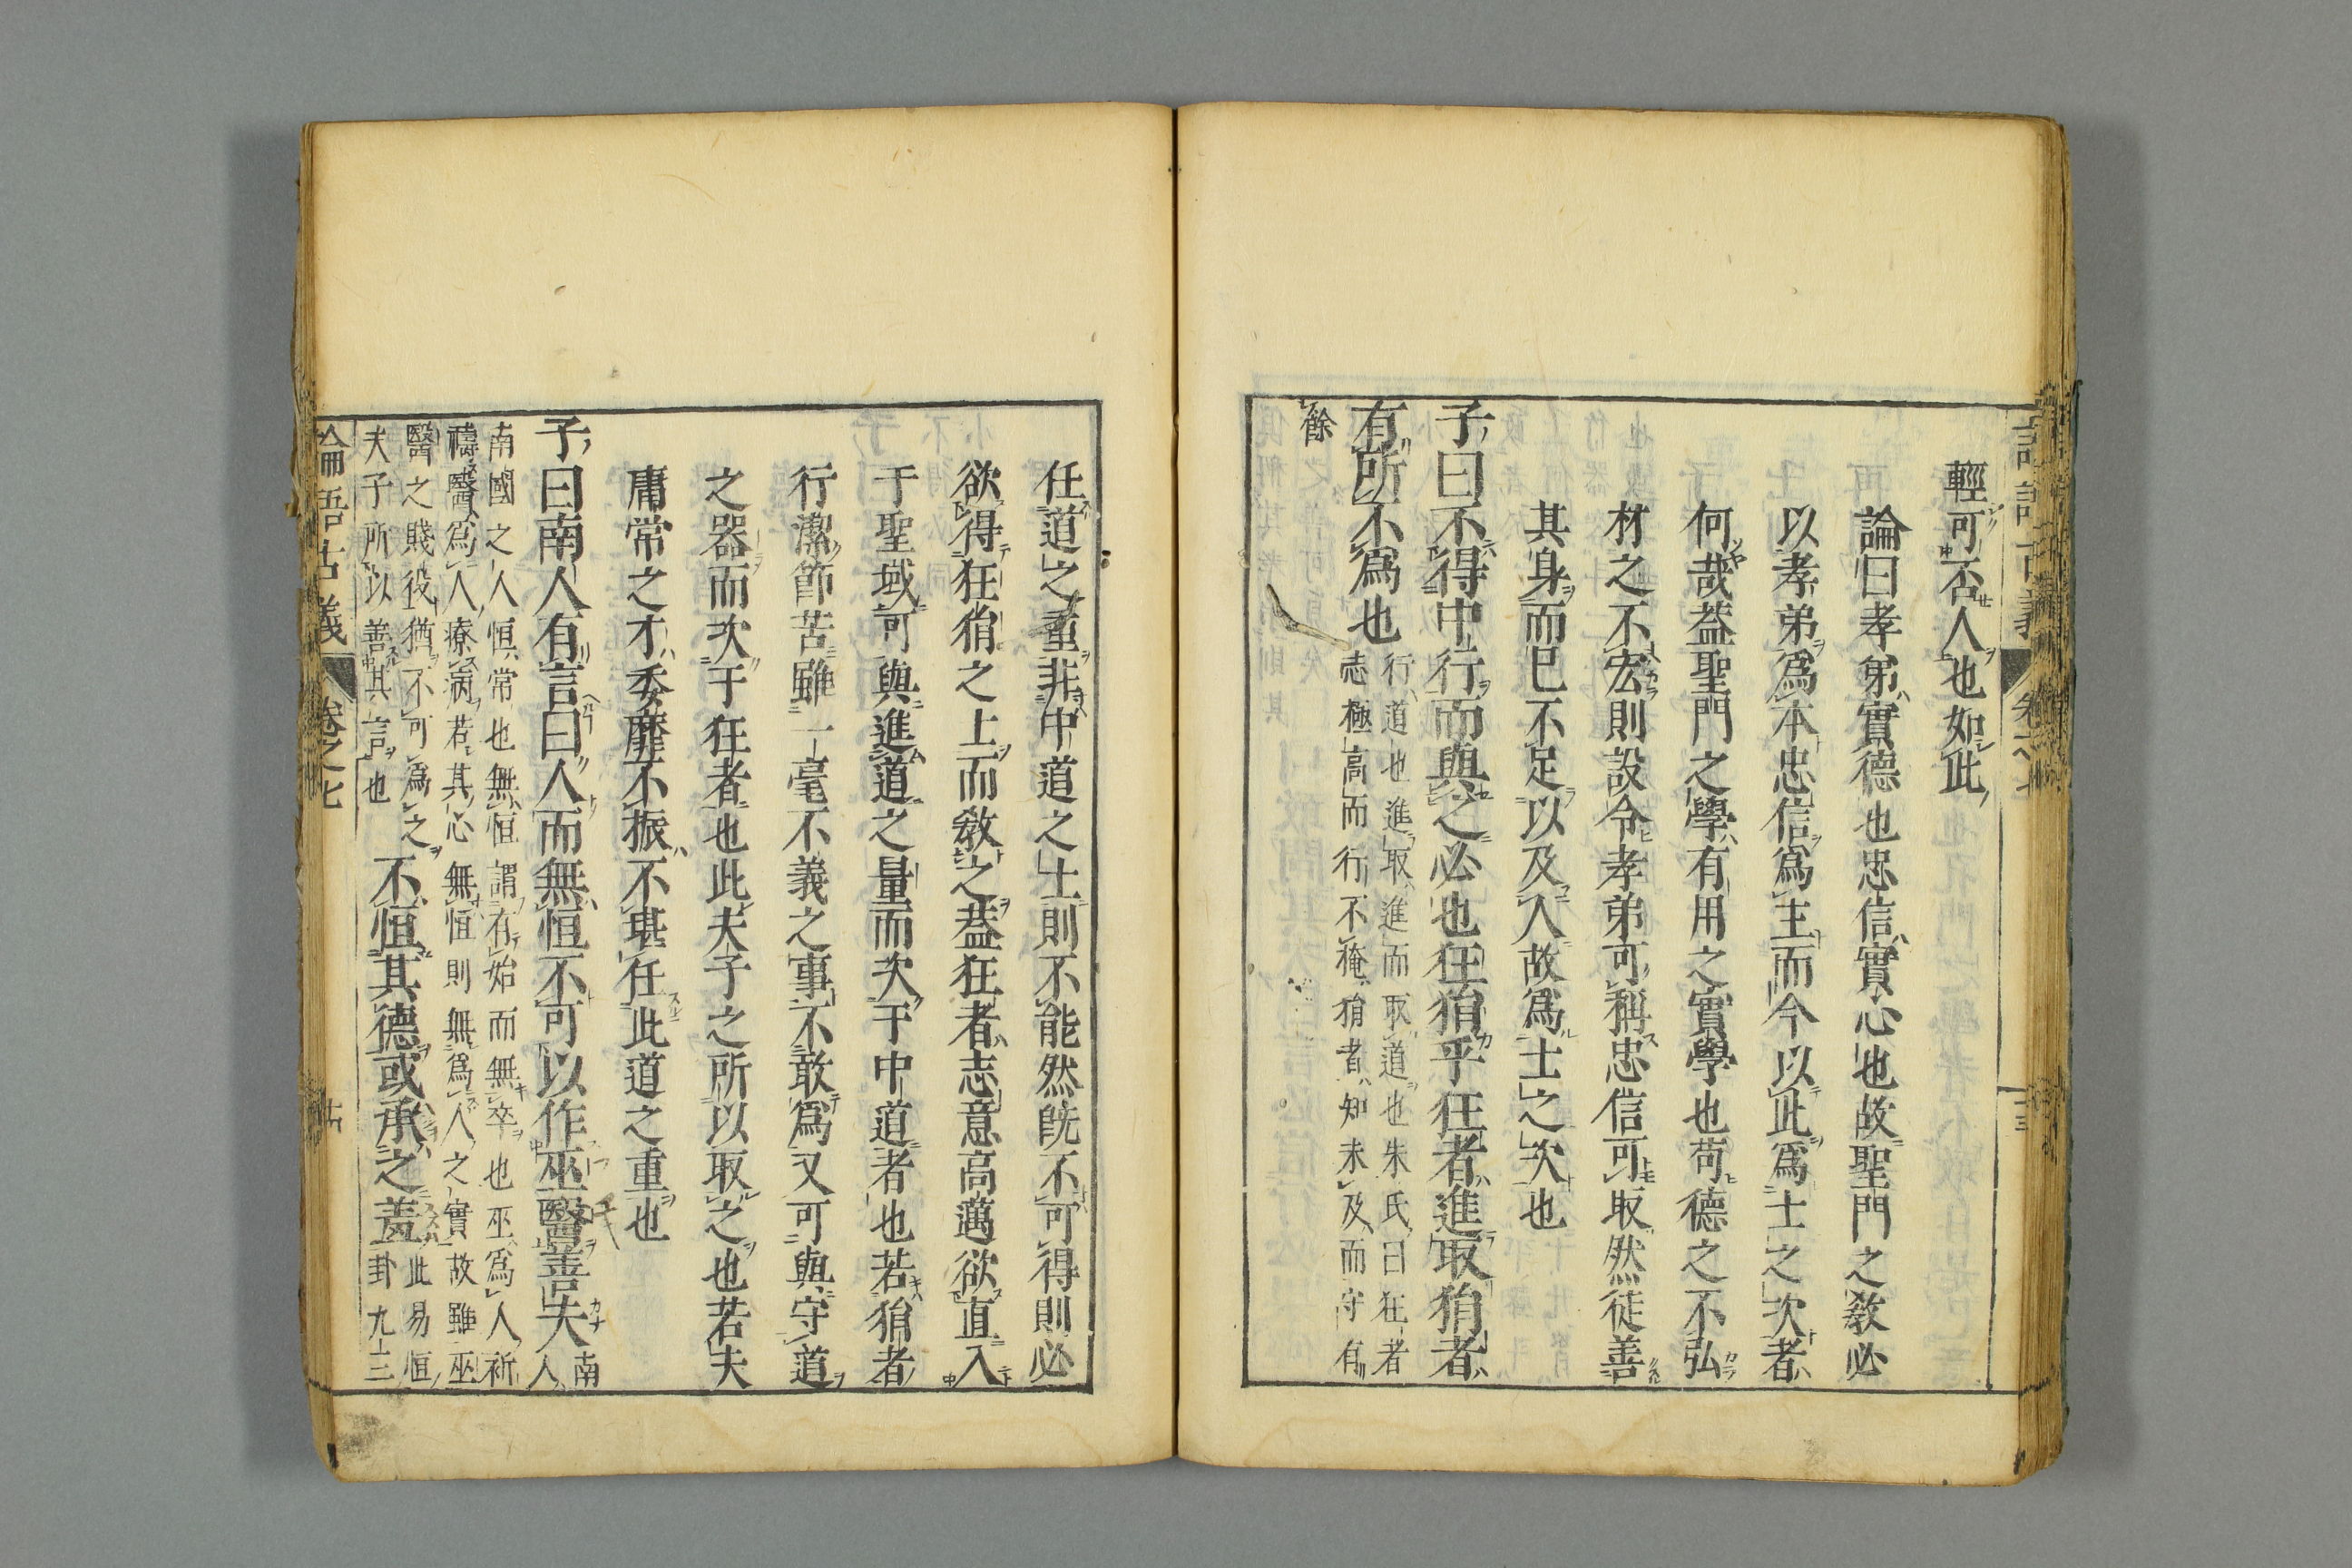 輕可否人也如此
論曰孝弟實德也忠信實心也故聖門之敎必
以孝弟爲本忠信爲主而今以此爲士之次者
何哉蓋聖門之學有用之實學也苟德之不弘
材之不宏則設令孝弟可稱忠信可取然徒善
其身而已不足以及人故爲士之次也
子曰不得中行而與之必也狂狷乎狂者進取狷者
有所不爲也
行道也進取進而取道也朱氏曰狂者
志極高而行不掩狷者知未及而守有
餘
任道之重非中道之士則不能然旣不可得則必
欲得狂狷之上而敎之蓋狂者志意高邁欲直入
于聖域可與進道之量而次于中道者也若狷者
行潔節苦雖一毫不義之事不敢爲又可與守道
之器而次于狂者也此夫子之所以取之也若夫
庸常之才委靡不振不堪任此道之重也
子曰南人有言曰人而無恒不可以作巫醫善夫
南
人
南國之人恒常也無恒謂有始而無卒也巫爲人祈
禱醫爲人療病若其心無恒則無爲人之實故雖巫
醫之賤役猶不可爲之
夫子所以善其言也
不恒其德或承之羞
此易恒
卦九三
論語古義
卷之七